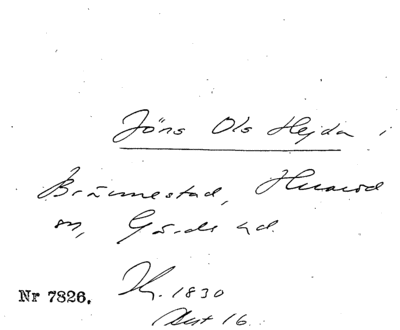 Jöns Ols Hejda i
Brönnestad, Huaröd
sn, Gärds hd.
Nr 7826. Hg. 1830
Aug 16